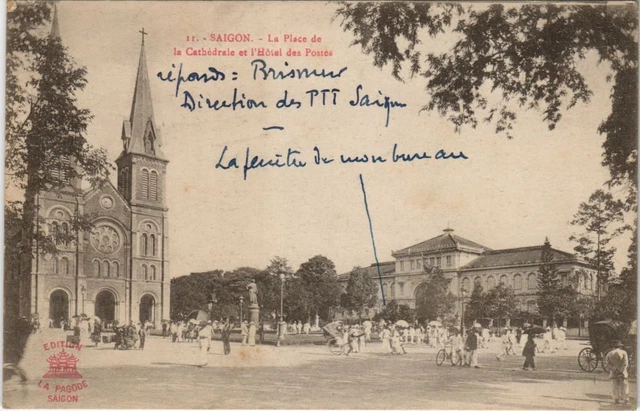 11. - SAIGON. - La Place de
la Cathédrale et l'Hôtel des Postes
réponds = Brismur
Direction des PTT Saigon
La fenêtre de mon bureau
EDITION
LA PAGODE
SAIGON